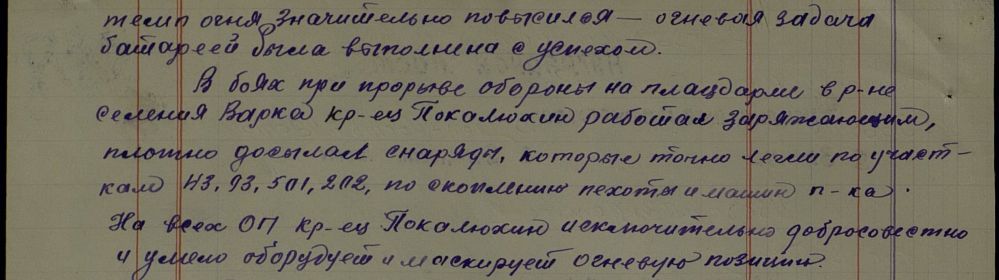 темп огня значительно повысился — огневая задача
батареей была выполнина с успехом.
В боях при прорыве обороны на плацдарме в р-не
селения Варка кр-ец Покалюхин работал заряжающим,
плотно досылал снаряды, которые точно легли по участ-
кам 43, 93, 501, 202, по скоплению пехоты и машин п-ка.
На всех ОП кр-ец Покалюхин исключительно добросовестно
и умело оборудует и маскирует огневую позицию.